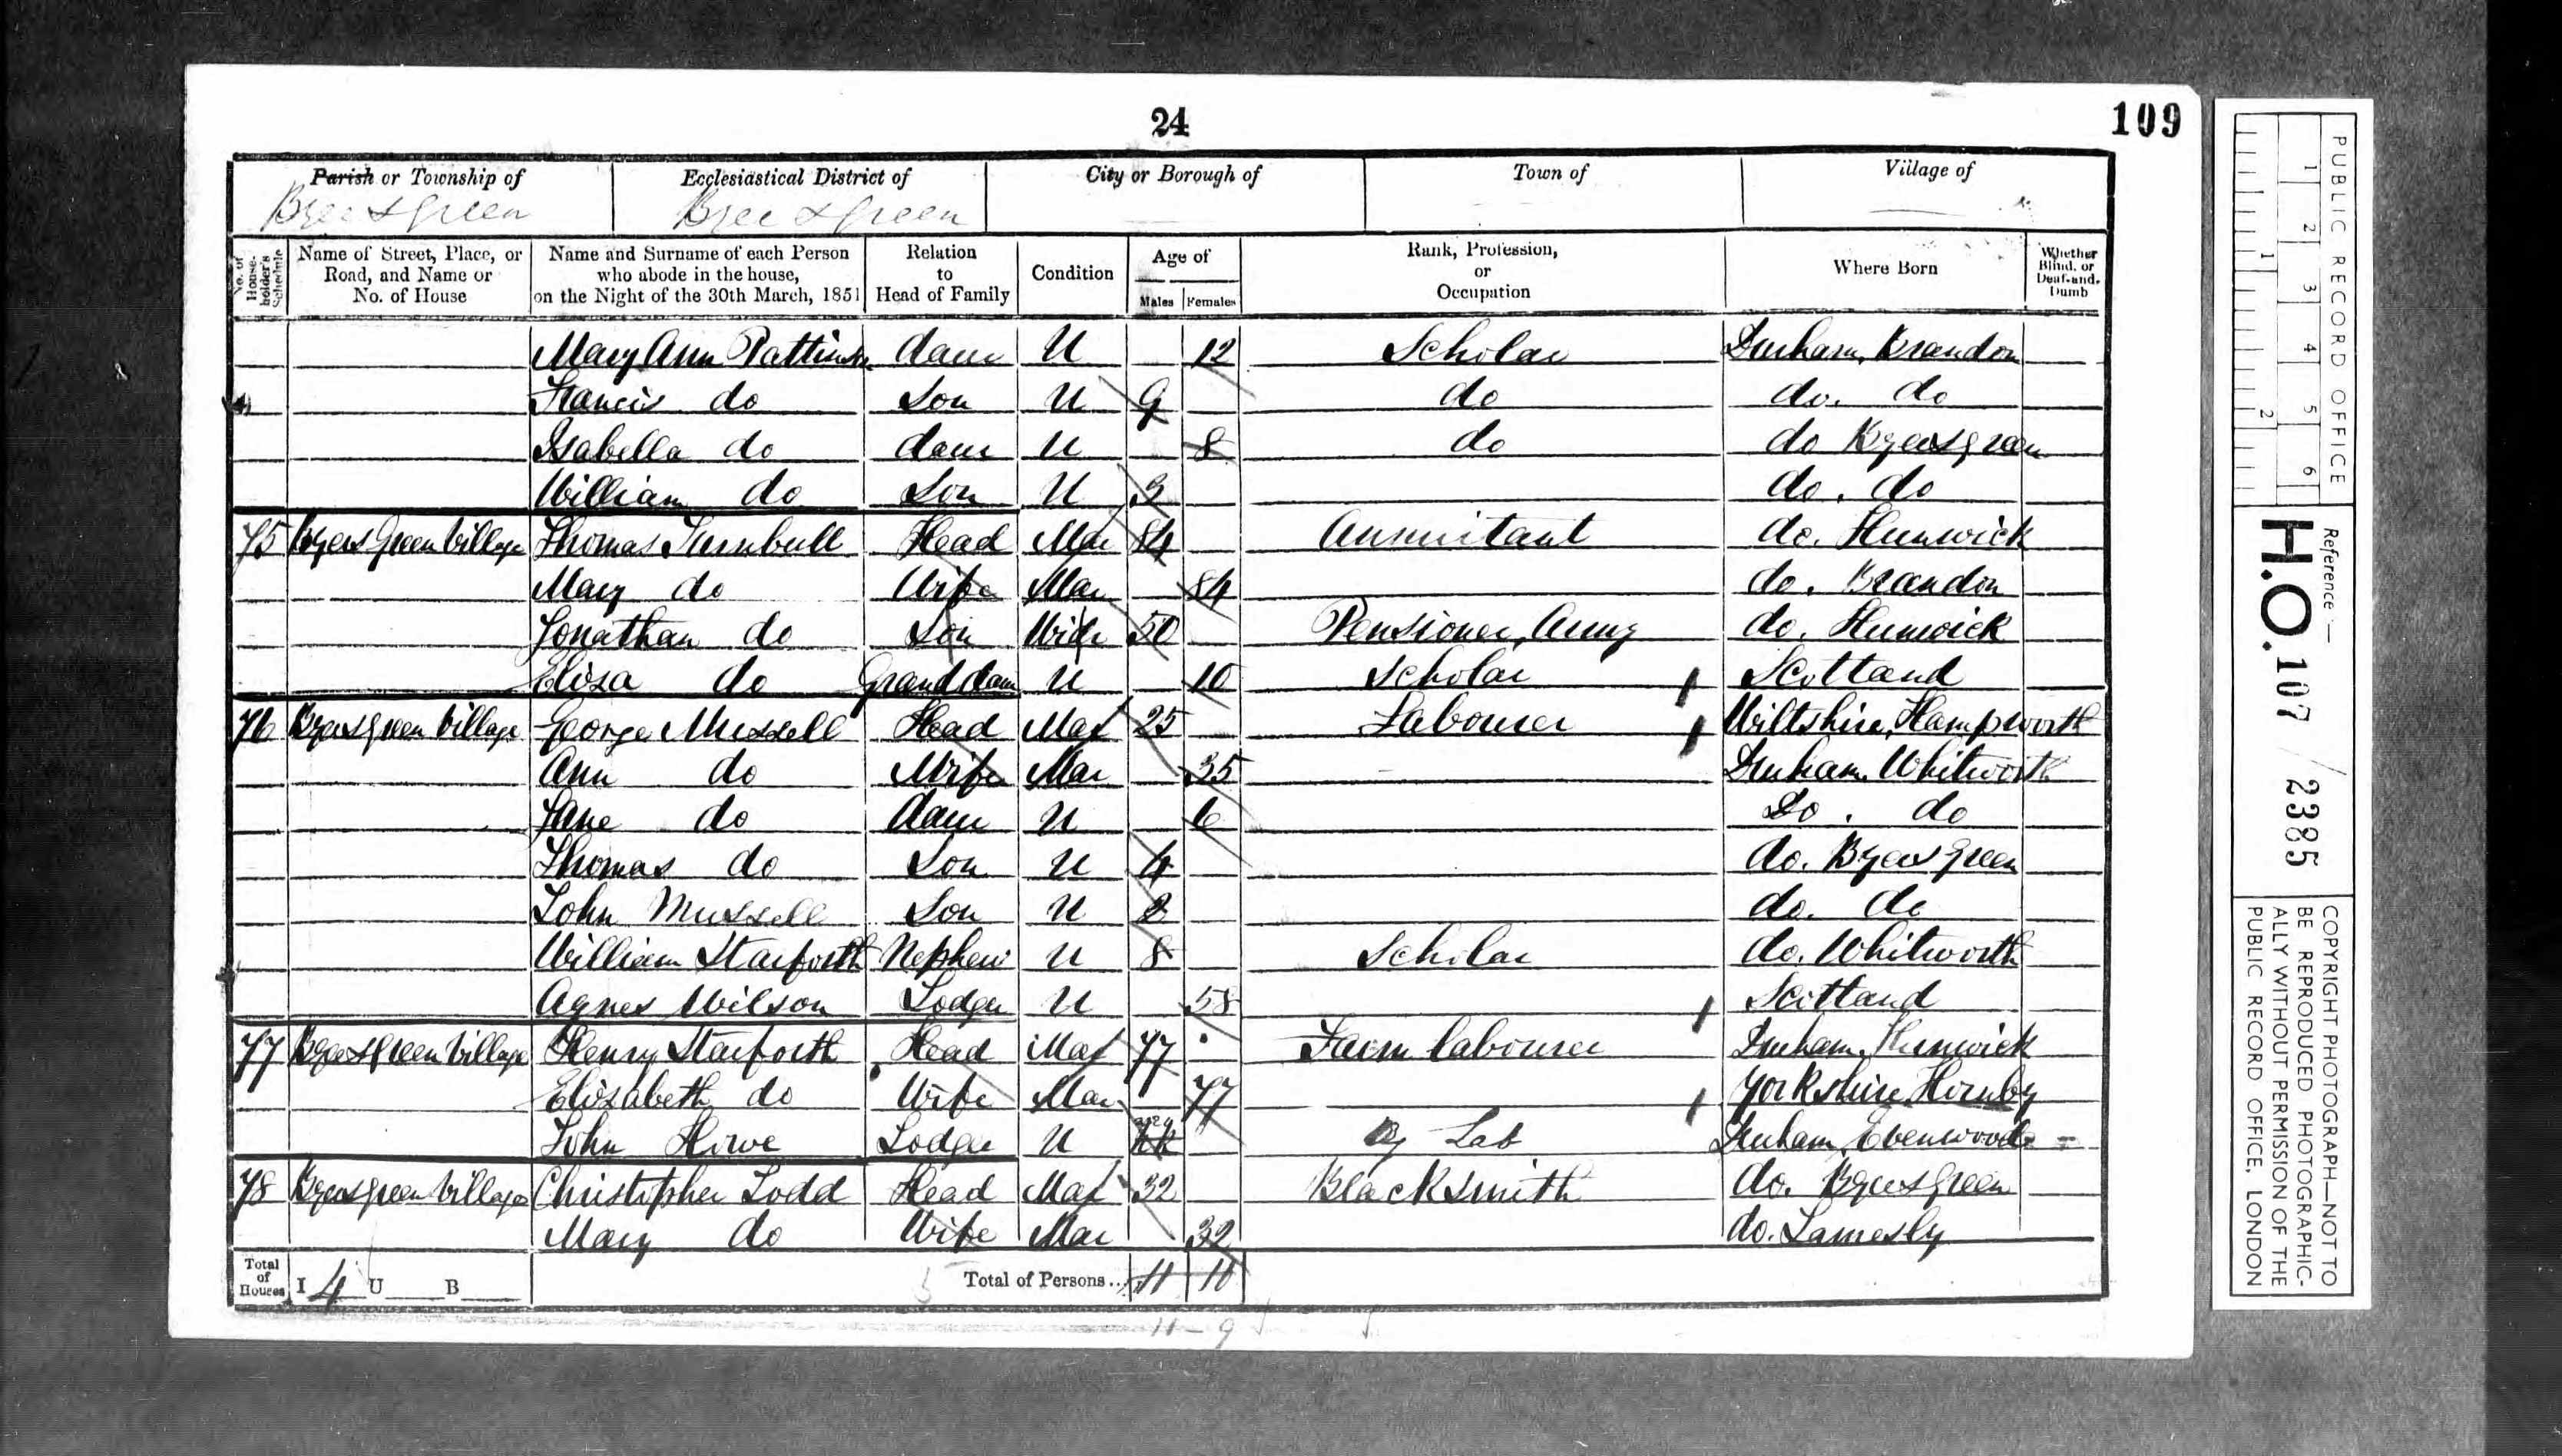 24
109
Parish or Township of Ecclesiastical District of City or Borough of Town of Village of
Byers Green Byers Green
No. of House-holder's Schedule Name of Street, Place, or Road, and Name or No. of House Name and Surname of each Person who abode in the house, on the Night of the 30th March, 1851 Relation to Head of Family Condition Age of Males Females Rank, Profession, or Occupation Where Born Whether Blind, or Deaf-and-Dumb
Mary Ann Pattinson daur U 12 Scholar Durham, Brandon
Francis do Son U 9 do do. do
Isabella do daur U 8 do do Byersgreen
William do Son U 3 do. do
75 Byers Green Village Thomas Turnbull Head Mar 84 Annuitant do. Hunwick
Mary do Wife Mar 84 do. Brandon
Jonathan do Son Widr 50 Pensioner, Army do. Hunwick
Elisa do Grand daur U 10 Scholar Scotland
76 Byersgreen Village George Mussell Head Mar 25 Labourer Wiltshire, Hampworth
Ann do Wife Mar 35 Durham, Whitworth
Jane do daur U 6 Do. do
Thomas do Son U 4 do. Byers Green
John Mussell Son U 2 do. do
William Starforth Nephew U 8 Scholar do. Whitworth
Agnes Wilson Lodger U 58 Scotland
77 Byersgreen Village Henry Starforth Head Mar 77 Farm labourer Durham, Hunwick
Elisabeth do Wife Mar 77 Yorkshire, Hornby
John Howe Lodger U Lab Durham, Evenwood
78 Byersgreen Village Christopher Todd Head Mar 32 Blacksmith do. Byersgreen
Mary do Wife Mar 32 do. Lamesly
Total of Houses I 4 U B Total of Persons... 11 10
11 - 9
PUBLIC RECORD OFFICE
1 2 3 4 5 6
1 2
Reference :-
H.O. 107 / 2385
COPYRIGHT PHOTOGRAPH—NOT TO BE REPRODUCED PHOTOGRAPHIC-ALLY WITHOUT PERMISSION OF THE PUBLIC RECORD OFFICE, LONDON